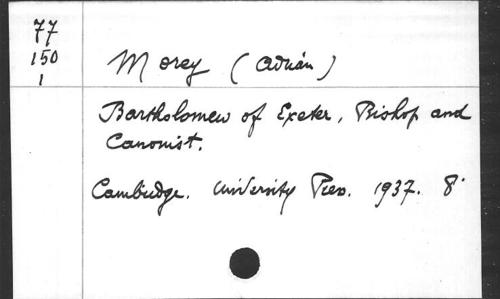 77
150
1
Morey (Adrian)
Bartholomew of Exeter, Bishop and
Canonist.
Cambridge. University Press. 1937. 8°